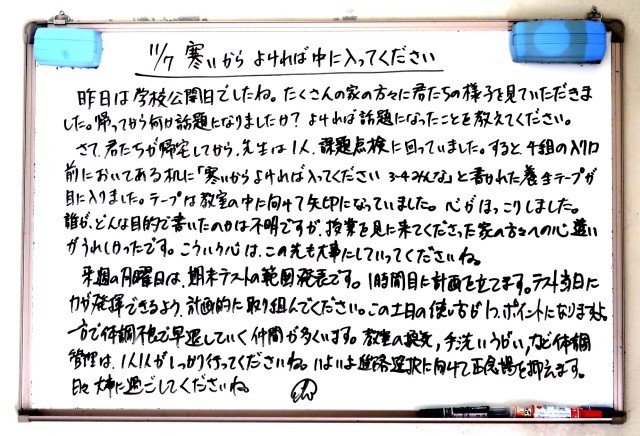 11/7 寒いから よければ中に入ってください
昨日は学校公開日でしたね。たくさんの家の方々に君たちの様子を見ていただきま
した。帰ってから何か話題になりましたか？よければ話題になったことを教えてください。
さて、君たちが帰宅してから、先生は1人、課題点検に回っていました。すると、4組の入り口
前においてある机に「寒いからよければ入ってください 3-4みんな」と書かれた養生テープが
目に入りました。テープは教室の中に向けて矢印になっていました。心がほっこりしました。
誰が、どんな目的で書いたのかは不明ですが、授業を見に来てくださった家の方々への心遣い
がうれしかったです。こういう心は、この先も大事にしていってくださいね。
来週の月曜日は、期末テストの範囲発表です。1時間目に計画を立てます。テスト当日に
力が発揮できるよう、計画的に取り組んでください。この土日の使い方が1つ、ポイントになりますよ。
一方で体調不良で早退していく仲間が多くいます。教室の換気、手洗いうがい、など体調
管理は、1人1人がしっかり行ってくださいね。いよいよ進路選択に向けて正念場を抑えます。
日々大事に過ごしてくださいね。